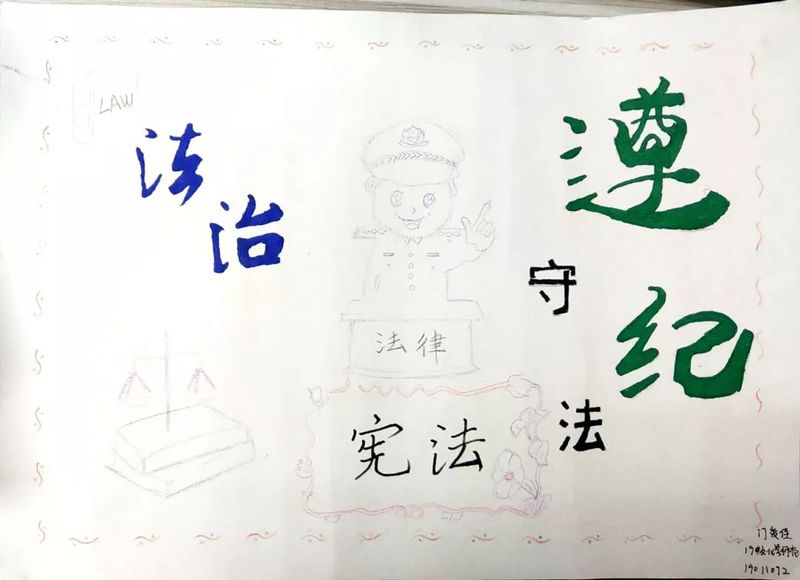 LAW
法治
遵纪
守法
法律
宪法
19级化学师范
19011072